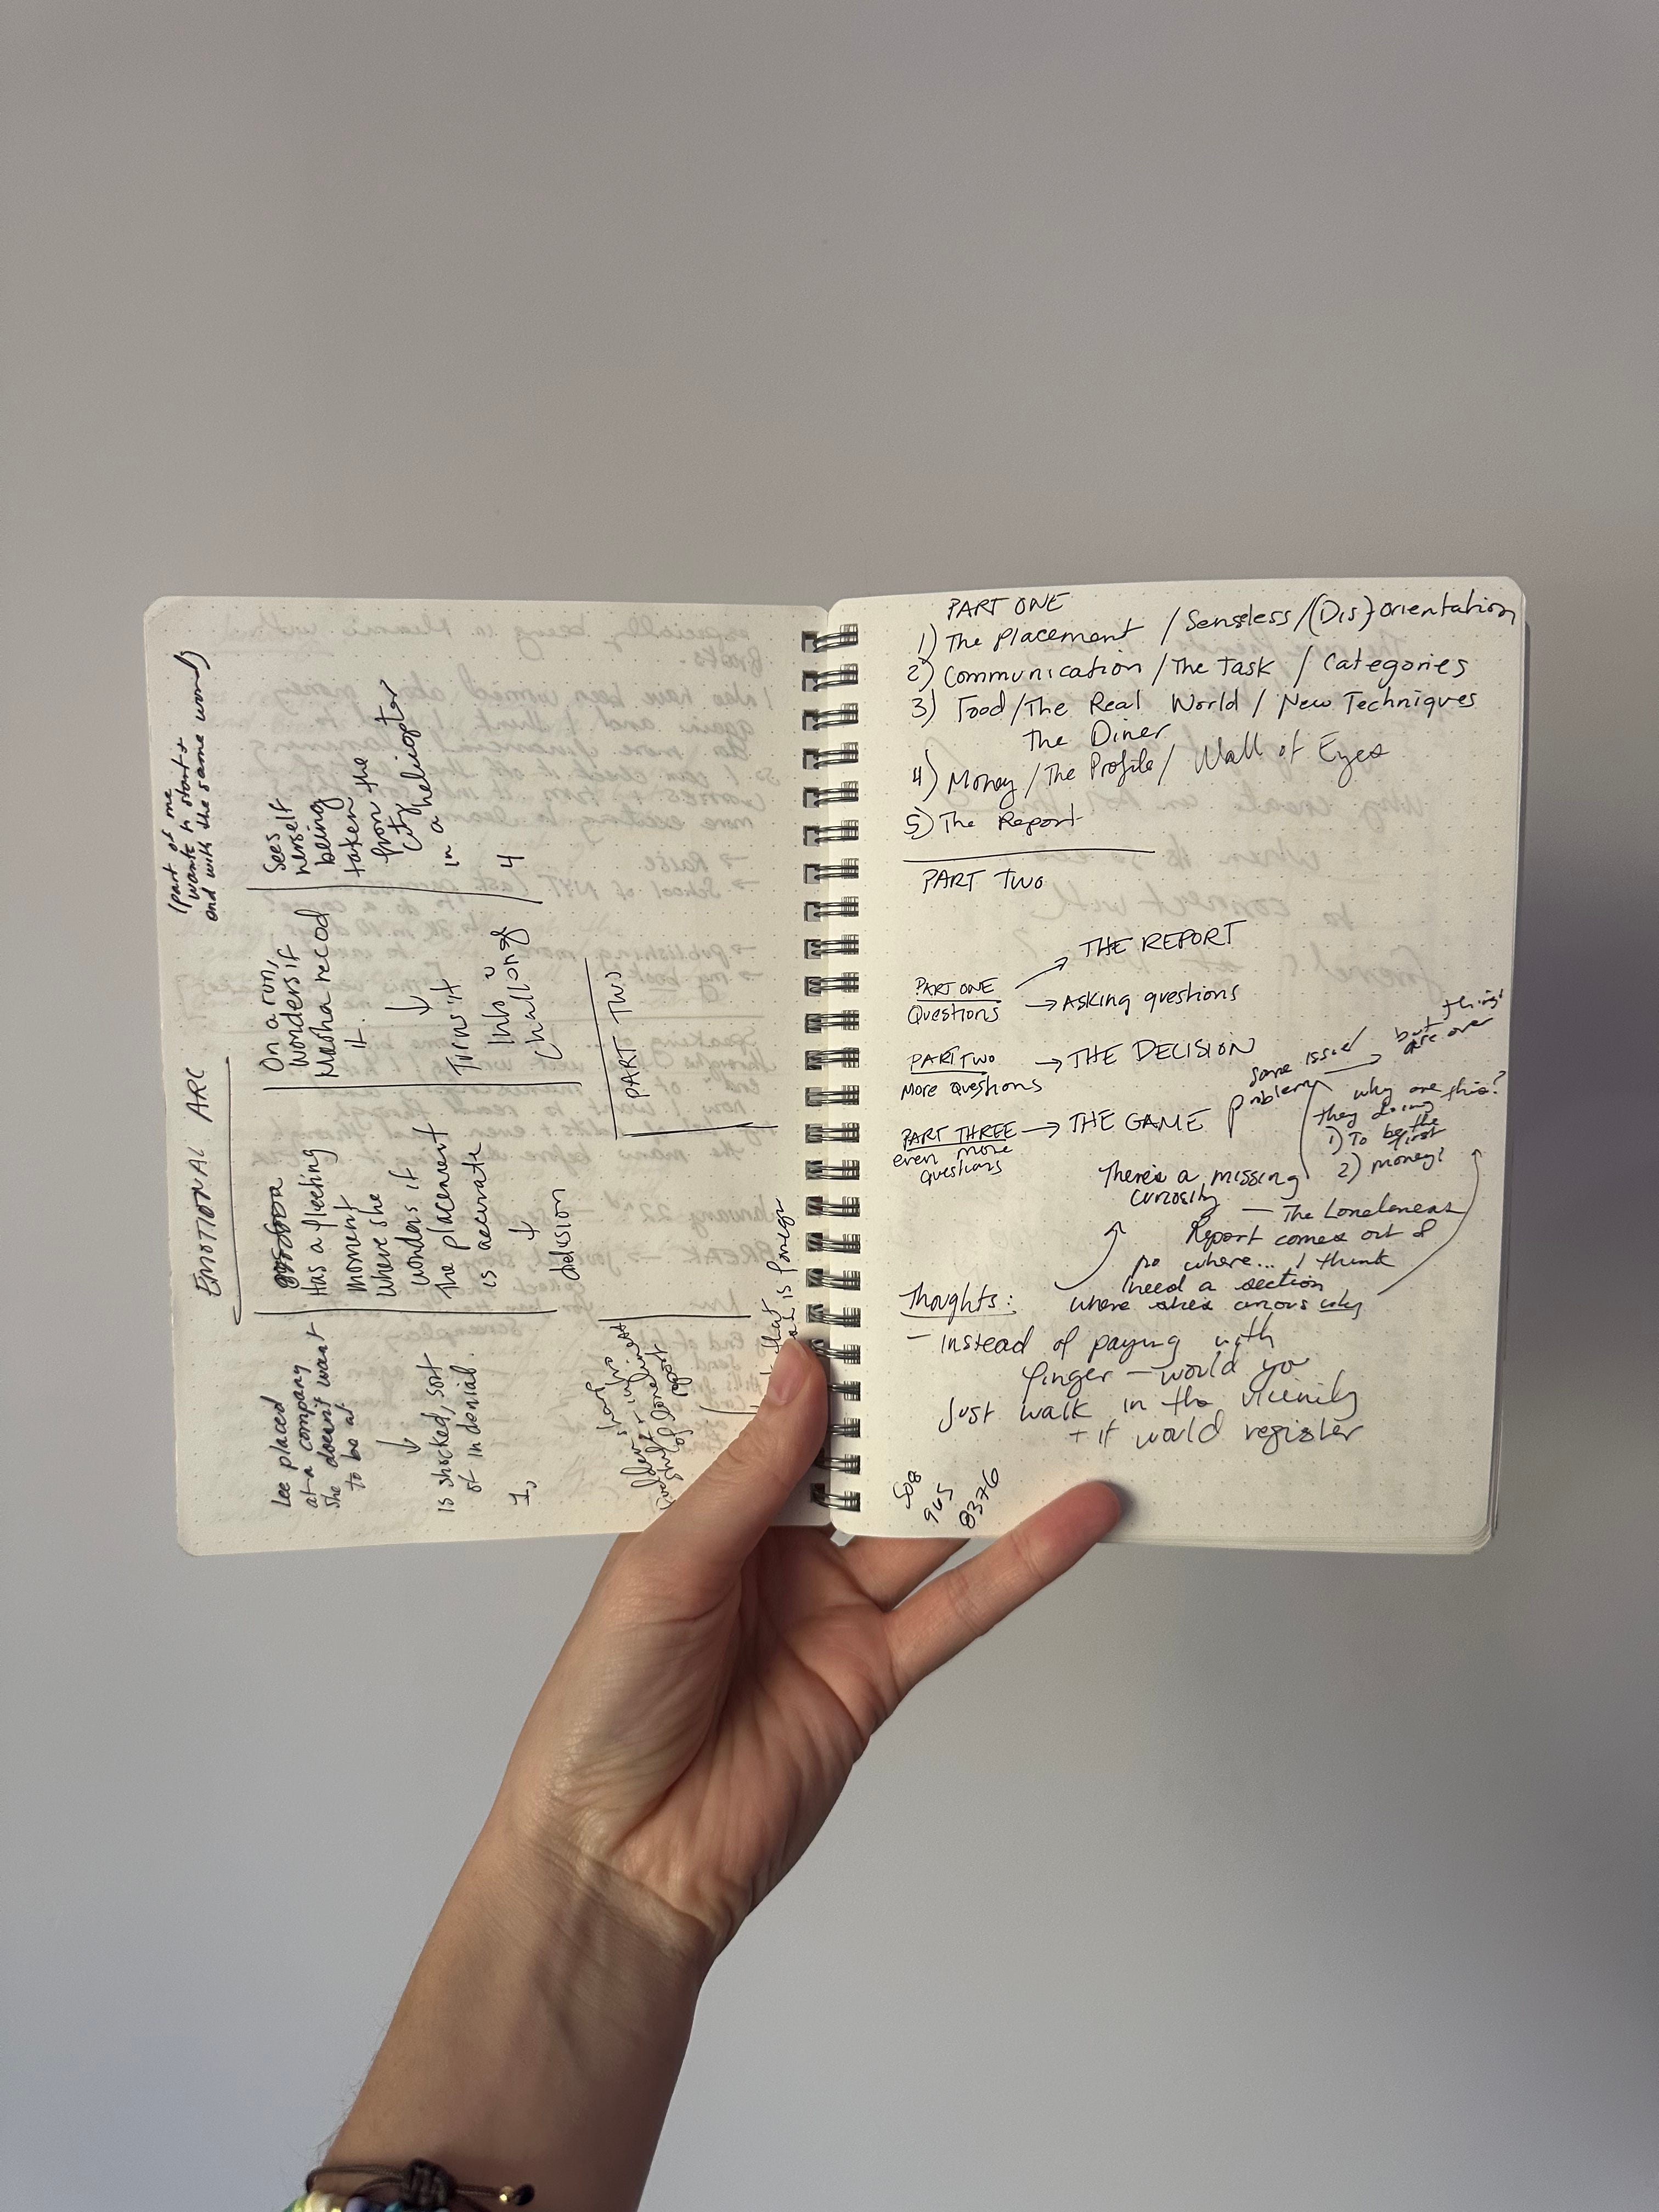 EMOTIONAL ARC
(part of me
wants to start +
end with the same word)
Lee placed
at a company
she doesn't want
to be at
↓
is shocked, sort
of in denial.
1,
Has a fleeting
moment
where she
wonders if
the placement
is accurate
↓
delusion
On a run,
wonders if
it.
↓
Turns it
into a
challenge
Sees
herself
being
taken
from the
city
in a helicopter
4
PART TWO
of loneliness
report
is foreign
PART ONE
1) The Placement / Senseless / (Dis)orientation
2) Communication / The Task / Categories
3) Food / The Real World / New Techniques
The Diner
4) Money / The Profile / Wall of Eyes
5) The Report
PART TWO
PART ONE → THE REPORT
Questions → Asking questions
PART TWO → THE DECISION
More questions
PART THREE → THE GAME
even more
questions
problem
same issue → but things
are over
why are
they doing this?
1) To be the
first
2) money?
There's a missing
curiosity — The Loneliness
Report comes out of
no where... I think
I need a section
where she's curious why
Thoughts:
– instead of paying with
finger – would you
just walk in the vicinity
+ it would register
508
965
8376